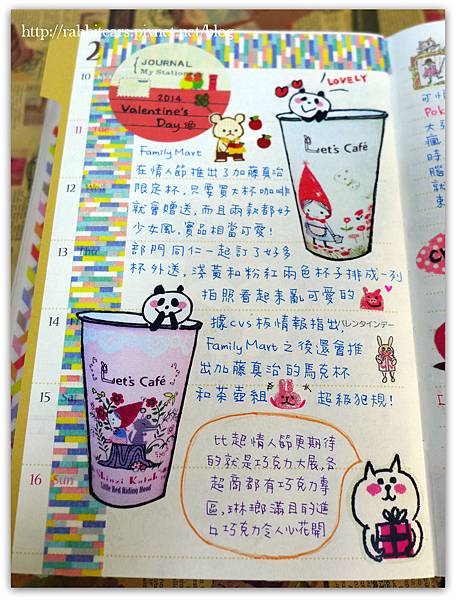 http://rabbitears.pixnet.net/blog
2
JOURNAL
My Station
2014
Valentine's
Day
LOVELY
10
11 Tue
12
13 Thu
14
15 Sat
16 Sun
Let's Café
Family Mart
在情人節推出了加藤真治
限定杯,只要買大杯咖啡
就會贈送,而且兩款都好
少女風,實品相當可愛!
部門同仁一起訂了好多
杯外送,淺黃和粉紅兩色杯子排成一列
拍照看起來亂可愛的
據cvs板情報指出バレンタインデー
Family Mart之後還會推
出加藤真治的馬克杯
和茶壺組 超級犯規!
Let's Café
Shinzi Katoh
Little Red Riding Hood
比起情人節更期待
的就是巧克力大展,各
超商都有巧克力專
區,琳瑯滿目的進
口巧克力令人心花開
可惜
Pok
大
瘋
時
腦
就
東